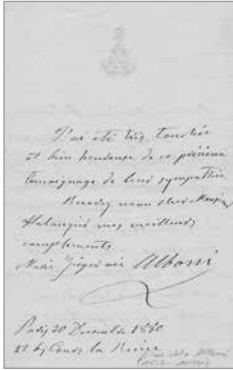 J'ai été très touchée
et bien heureuse de ce précieux
témoignage de leur sympathie.
Rendez mon cher Monsieur
mes meilleurs
compliments
Alboni
Paris 20 Décembre 1880
22 Cours la Reine